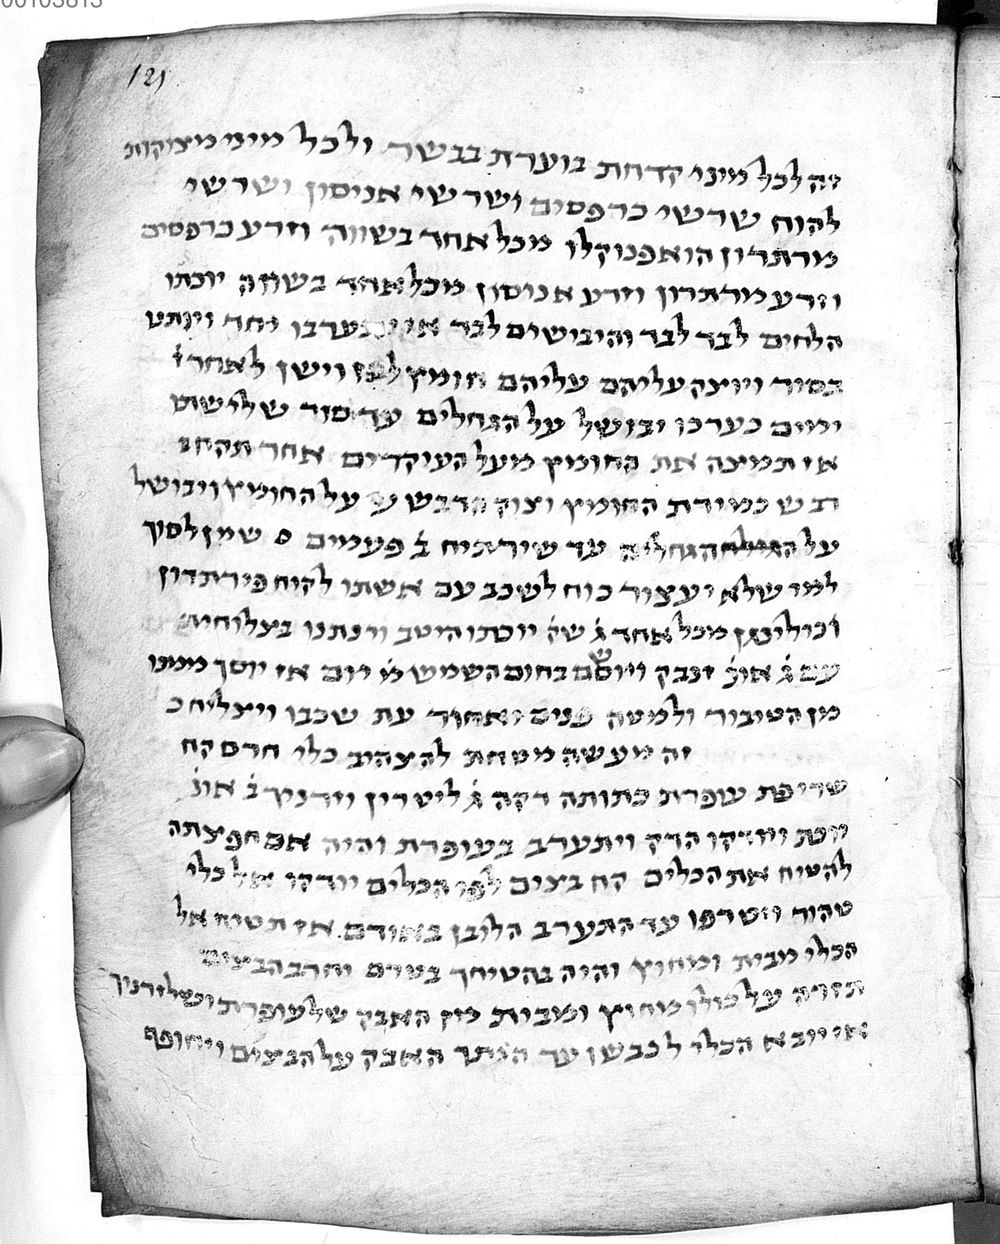 00103813
121
זה לכל מיני קדחת בוערת בבשר ולכל מיני מציקות
להוח שרשי כרפסים ושרשי אניסון ושרשי
מרתרון הוא פנוקלו מכל אחד בשווה וזרע כרפסים
וזרע מרתרון וזרע אניסון מכל אחד בשווה יוכתו
הלחים לבד לבד והיבישים לבד יערבו יחד וינתנו
בסיר ויוצק עליהם עליהם חומץ וישן לאחר
ימים כערכו יבושל על הגחלים עד סוד שלישתו
אז תמצה את החומץ מעל העיקרים אחר תקח
דבש כמידת החומץ וצוק הדבש על החומץ ויבושל
על הגחלים עד שירתיח ב֗ פעמים ס שמן לסוך
למי שלא יעצור כוח לשכב עם אשתו להוח פירתרון
מכל אחד ג֗ יוכתו היטב וינתנו בצלוחית
עם ג֗ אונ֗ זנבק ויושם בחום השמש מ֗ יום אז יוסך ממנו
מן הטיבור ולמטה פנים ואחור עת שכבו ויצליח
זה מעשה מטחת להצהיב כלי חרס קח
שריפת עופרת כתותה דקה ג֗ ליטרין וירניך ב֗ אונ֗
יוכת ויודקו הדק ויתערב בעופרת והיה אם חפצתה
להטיח את הכלים קח בצים לפי הכלים יורקו אל כלי
טהור ויטרפו עד התערב הלובן באודם אז תטיח אל
הכלי מבית ומחוץ והיה בהטיחך בטרם יחרב הבצים
תזרה על כולו מחוץ ומבית מן האבק של עופרת ושל זרניך
אז יובא הכלי לכבשן עד התך האבק על הבצים ויחופף